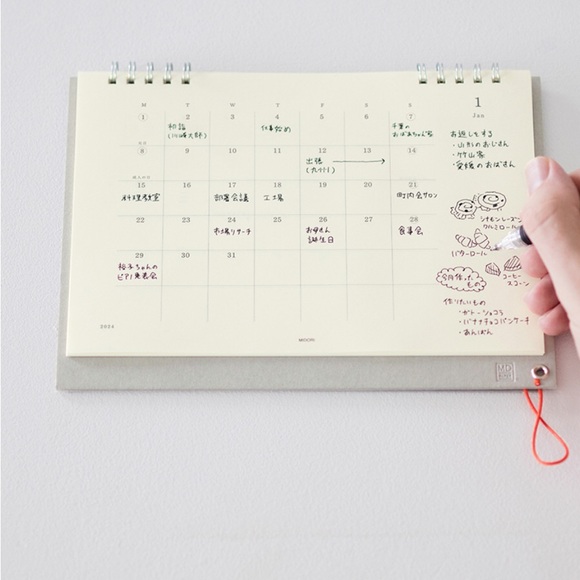 1
Jan
M T W T F S S
1 2 3 4 5 6 7
初詣
仕事始め
千葉の
おばあちゃん家
8 9 10 11 12 13 14
出張
(九州)
15 16 17 18 19 20 21
料理教室
部署会議
工場
町内会サロン
22 23 24 25 26 27 28
市場リサーチ
お母さん
誕生日
食事会
29 30 31
裕子ちゃんの
ピアノ発表会
2024
MIDORI
お返しをする
・山形のおじさん
・竹山家
・愛媛のおばさん
シナモンレーズン
クルミロール
バターロール
コーヒー
スコーン
今月作った
もの
作りたいもの
・ガトーショコラ
・バナナチョコパンケーキ
・あんぱん
MD